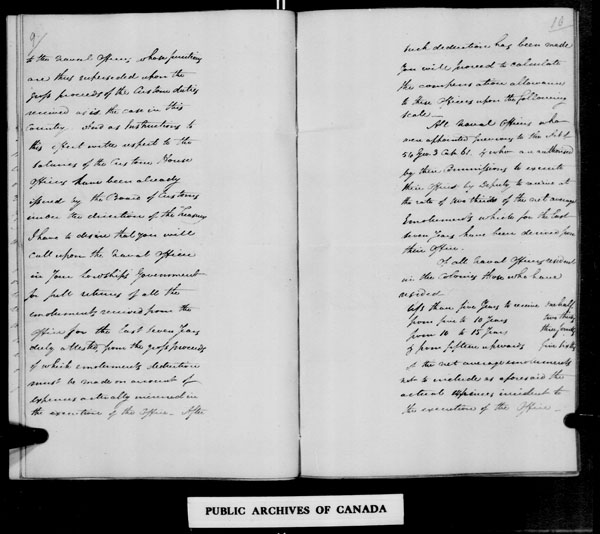 9
to the Naval Officers whose functions
are thus superseded upon the
gross proceeds of the Customs duties
received as is the case in this
Country. And as Instructions to
this effect with respect to the
Salaries of the Custom House
Officers have been already
issued by the Board of Customs
under the direction of the Treasury
I have to desire that you will
call upon the Naval Officer
in Your Lordships Government
for full returns of all the
emoluments received from the
Office for the last seven Years
duly attested, from the gross proceeds
of which emoluments deduction
must be made on account of
expences actually incurred in
the execution of the Office_ After
10
such deduction has been made
you will proceed to calculate
the compensation allowance
to these Officers upon the following
scale
All Naval Officers who
were appointed previous to the Act of
54 Geo. 3 Cab. 61. & who are authorised
by their Commissions to execute
their Offices by Deputy to receive at
the rate of two thirds of the net average
Emoluments which for the last
seven Years have been derived from
their Office.
To all Naval Officers resident
in the Colonies those who have
resided
less than five Years to receive one half
from five to 10 Years two thirds
from 10 to 15 Years three fourths
& from fifteen upwards five sixths
of the net average emoluments
not to include as aforesaid the
actual expences incident to
the execution of the Office_
PUBLIC ARCHIVES OF CANADA